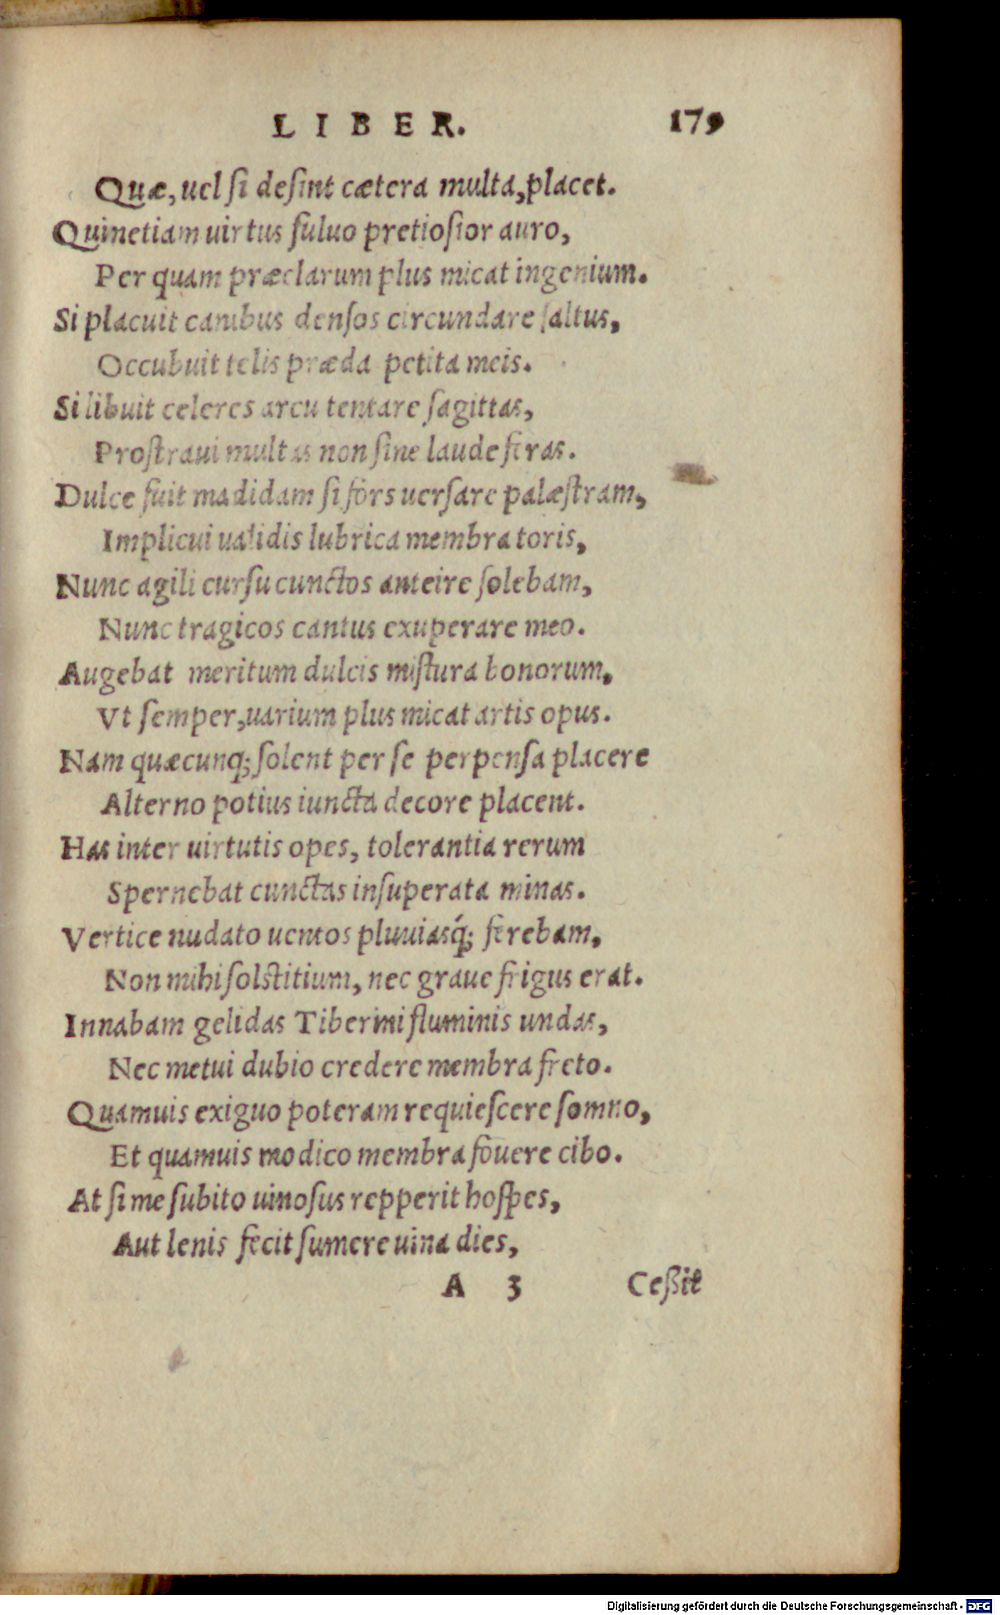 LIBER. 179
Quæ, uel si desint cætera multa, placet.
Quinetiam uirtus fuluo pretiosior auro,
Per quam præclarum plus micat ingenium.
Si placuit canibus densos circundare saltus,
Occubuit telis præda petita meis.
Si libuit celeres arcu tentare sagittas,
Prostraui multas non sine laude feras.
Dulce fuit madidam si fors uersare palæstram,
Implicui ualidis lubrica membra toris,
Nunc agili cursu cunctos anteire solebam,
Nunc tragicos cantus exuperare meo.
Augebat meritum dulcis mistura bonorum,
Vt semper, uarium plus micat artis opus.
Nam quæcunq; solent per se perpensa placere
Alterno potius iuncta decore placent.
Has inter uirtutis opes, tolerantia rerum
Spernebat cunctas insuperata minas.
Vertice nudato uentos pluuiasq́; ferebam,
Non mihi solstitium, nec graue frigus erat.
Innabam gelidas Tiberini fluminis undas,
Nec metui dubio credere membra freto.
Quamuis exiguo poteram requiescere somno,
Et quamuis modico membra fouere cibo.
At si me subito uinosus repperit hospes,
Aut lenis fecit sumere uina dies,
A 3 Ceßit
Digitalisierung gefördert durch die Deutsche Forschungsgemeinschaft - DFG